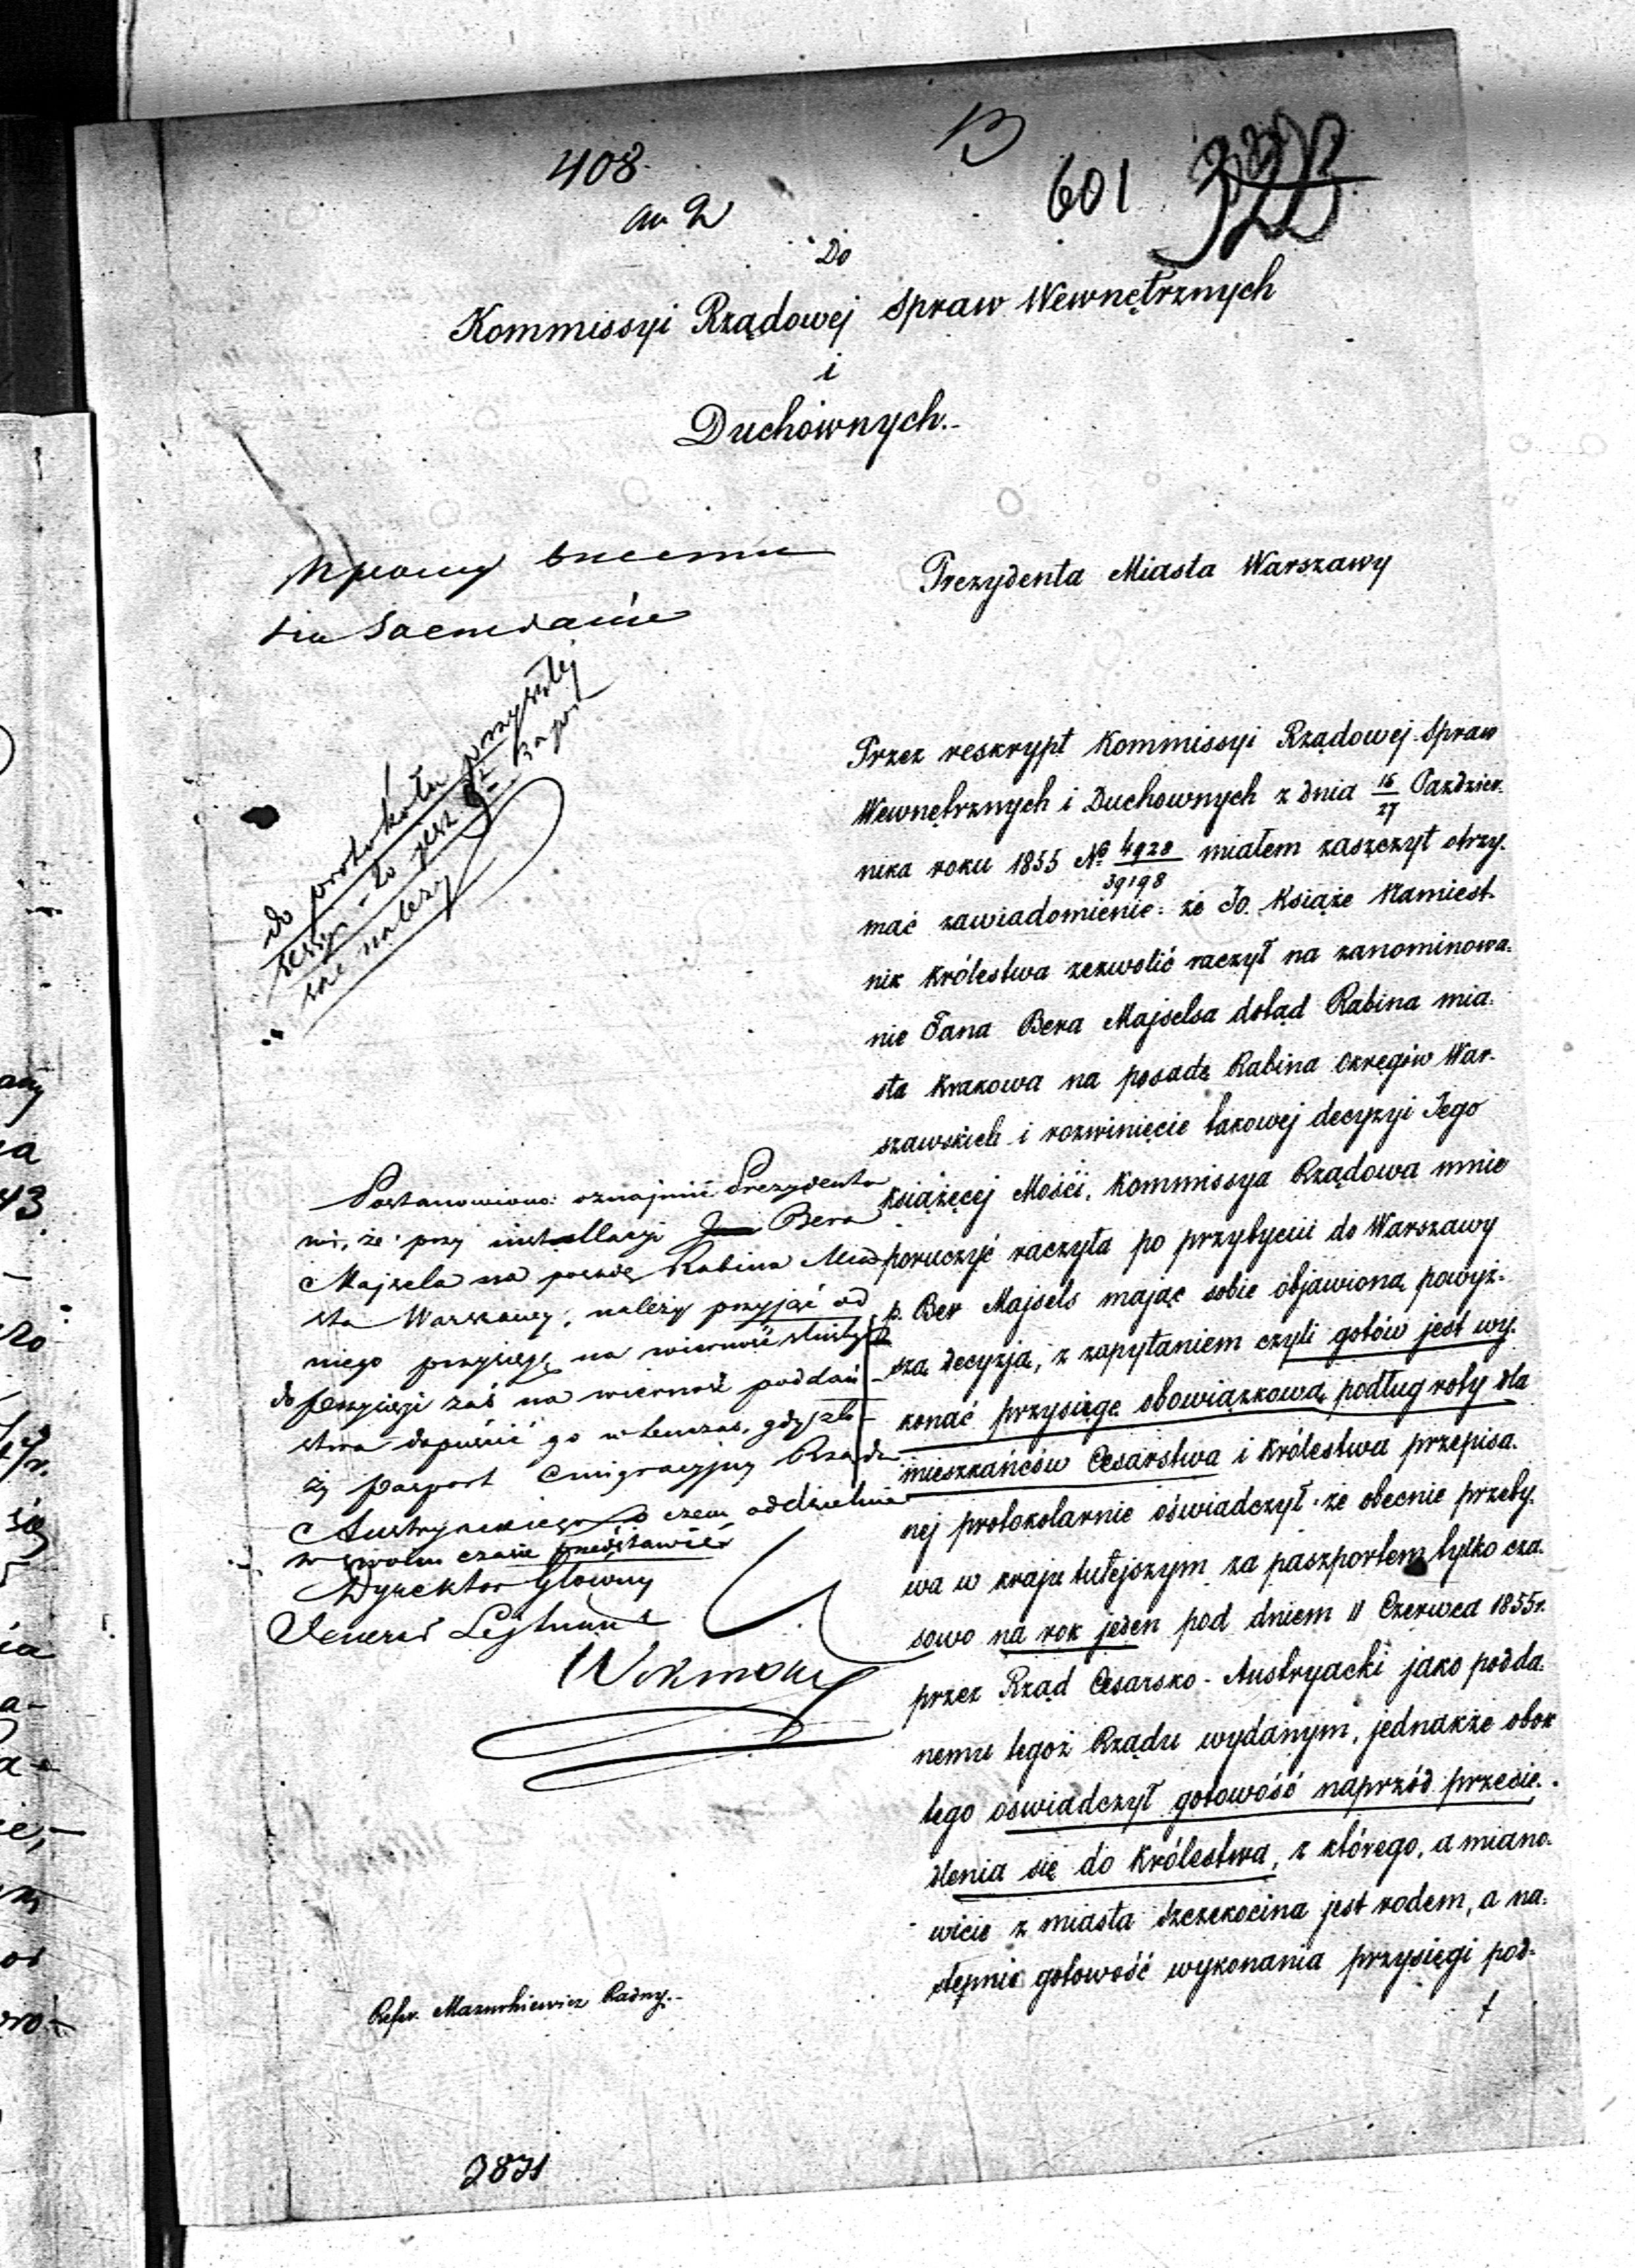 408
13
601
Do
Kommissyi Rządowej Spraw Wewnętrznych
i
Duchownych.
Prezydenta Miasta Warszawy
do protokołu przyszłej
sessyi - to jest
Przez reskrypt Kommissyi Rządowej Spraw
Wewnętrznych i Duchownych z dnia 15/27 Paździer-
nika roku 1855 No 4928/39198 miałem zaszczyt otrzy-
mać zawiadomienie: że Jo. Książe Namiest-
nik Królestwa zezwolić raczył na zanominowa-
nie Pana Bera Majselsa dotąd Rabina mia-
sta Krakowa na posadę Rabina okręgów War-
szawskich i rozwinięcie takowej decyzyi Jego
Książęcej Mości, Kommissya Rządowa mnie
poruczyć raczyła po przybyciu do Warszawy
p. Ber Majsels mając sobie objawioną powyż-
szą decyzją, z zapytaniem czyli gotów jest wy-
konać przysięgę obowiązkową podług roty dla
mieszkańców Cesarstwa i Królestwa przepisa-
nej protokolarnie oświadczył że obecnie przeby-
wa w kraju tutejszym za paszportem tylko cza-
sowo na rok jeden pod dniem 11 Czerwca 1855r.
przez Rząd Cesarsko-Austryacki jako podda-
nemu tegoż Rządu wydanym, jednakże obok
tego oświadczył gotowość naprzód przesie-
dlenia się do Królestwa, z którego, a miano-
wicie z miasta Szczekocina jest rodem, a na-
stępnie gotowość wykonania przysięgi pod-
Postanowiono: oznajmić Prezydento
wi, że przy installacyi Bera
Majzela na posadę Rabina Mia-
sta Warszawy, należy przyjąć od
niego przysięgę na wierność służby
do przysięgi zaś na wierność poddań-
stwa dopuścić go wtenczas, gdy zło-
ży paszport Emigracyjny Rządu
Austryackiego o czem oddzielnie
w swoim czasie przedstawić
Dyrektor Główny
Jenerał Lejtnant
Refer. Mazurkiewicz Radny.
2871